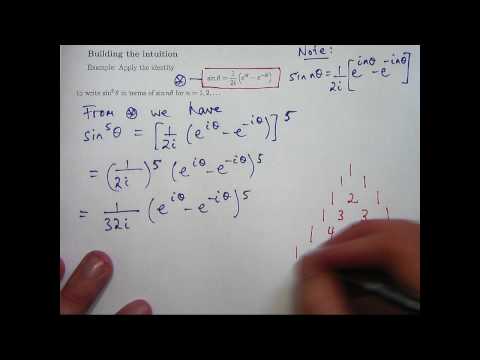 Building the intuition
Example: Apply the identity
⊛ → sin θ = 1/2i (e^{iθ} − e^{−iθ})
to write sin⁵ θ in terms of sin nθ for n = 1, 2, . . .
Note:
sin nθ = 1/2i [e^{inθ} − e^{−inθ}]
From ⊛ we have
sin⁵θ = [1/2i (e^{iθ} − e^{−iθ})]⁵
= (1/2i)⁵ (e^{iθ} − e^{−iθ})⁵
= 1/32i (e^{iθ} − e^{−iθ})⁵
1 1
1 2 1
1 3 3 1
1 4
1